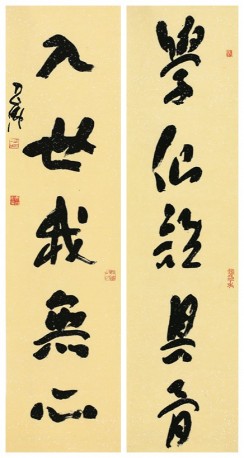 學仙誰具骨
入世我無心